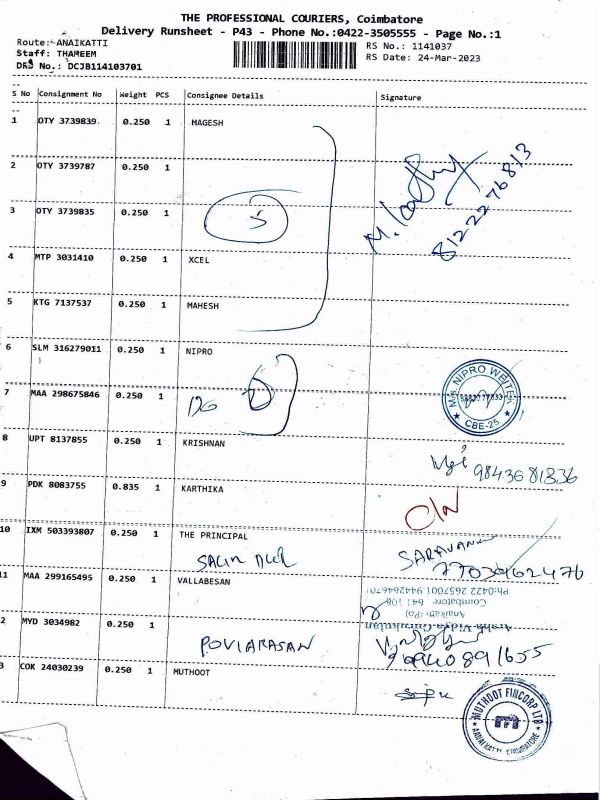 THE PROFESSIONAL COURIERS, Coimbatore
Delivery Runsheet - P43 - Phone No.:0422-3505555 - Page No.:1
Route: ANAIKATTI RS No.: 1141037
Staff: THAMEEM RS Date: 24-Mar-2023
DRS No.: DCJB114103701
S No Consignment No Weight PCS Consignee Details Signature
1 OTY 3739839 0.250 1 MAGESH
2 OTY 3739787 0.250 1
8122276813
3 OTY 3739835 0.250 1
5
4 MTP 3031410 0.250 1 XCEL
5 KTG 7137537 0.250 1 MAHESH
6 SLM 316279011 0.250 1 NIPRO
M/s. NIPRO WEITEK
CBE-25
7 MAA 298675846 0.250 1
8 UPT 8137855 0.250 1 KRISHNAN
9843681836
9 PDK 8083755 0.835 1 KARTHIKA
10 IXM 503393807 0.250 1 THE PRINCIPAL
SARAVANA
7703962476
11 MAA 299165495 0.250 1 VALLABESAN
Ph:0422 2657001
Coimbatore 641 108
Anaikatti (Po)
Arsha Vidya Gurukulam
2 MYD 3034982 0.250 1
POVIARASAN
3 COK 24030239 0.250 1 MUTHOOT
MUTHOOT FINCORP LTD
AANAIKATTI COIMBATORE